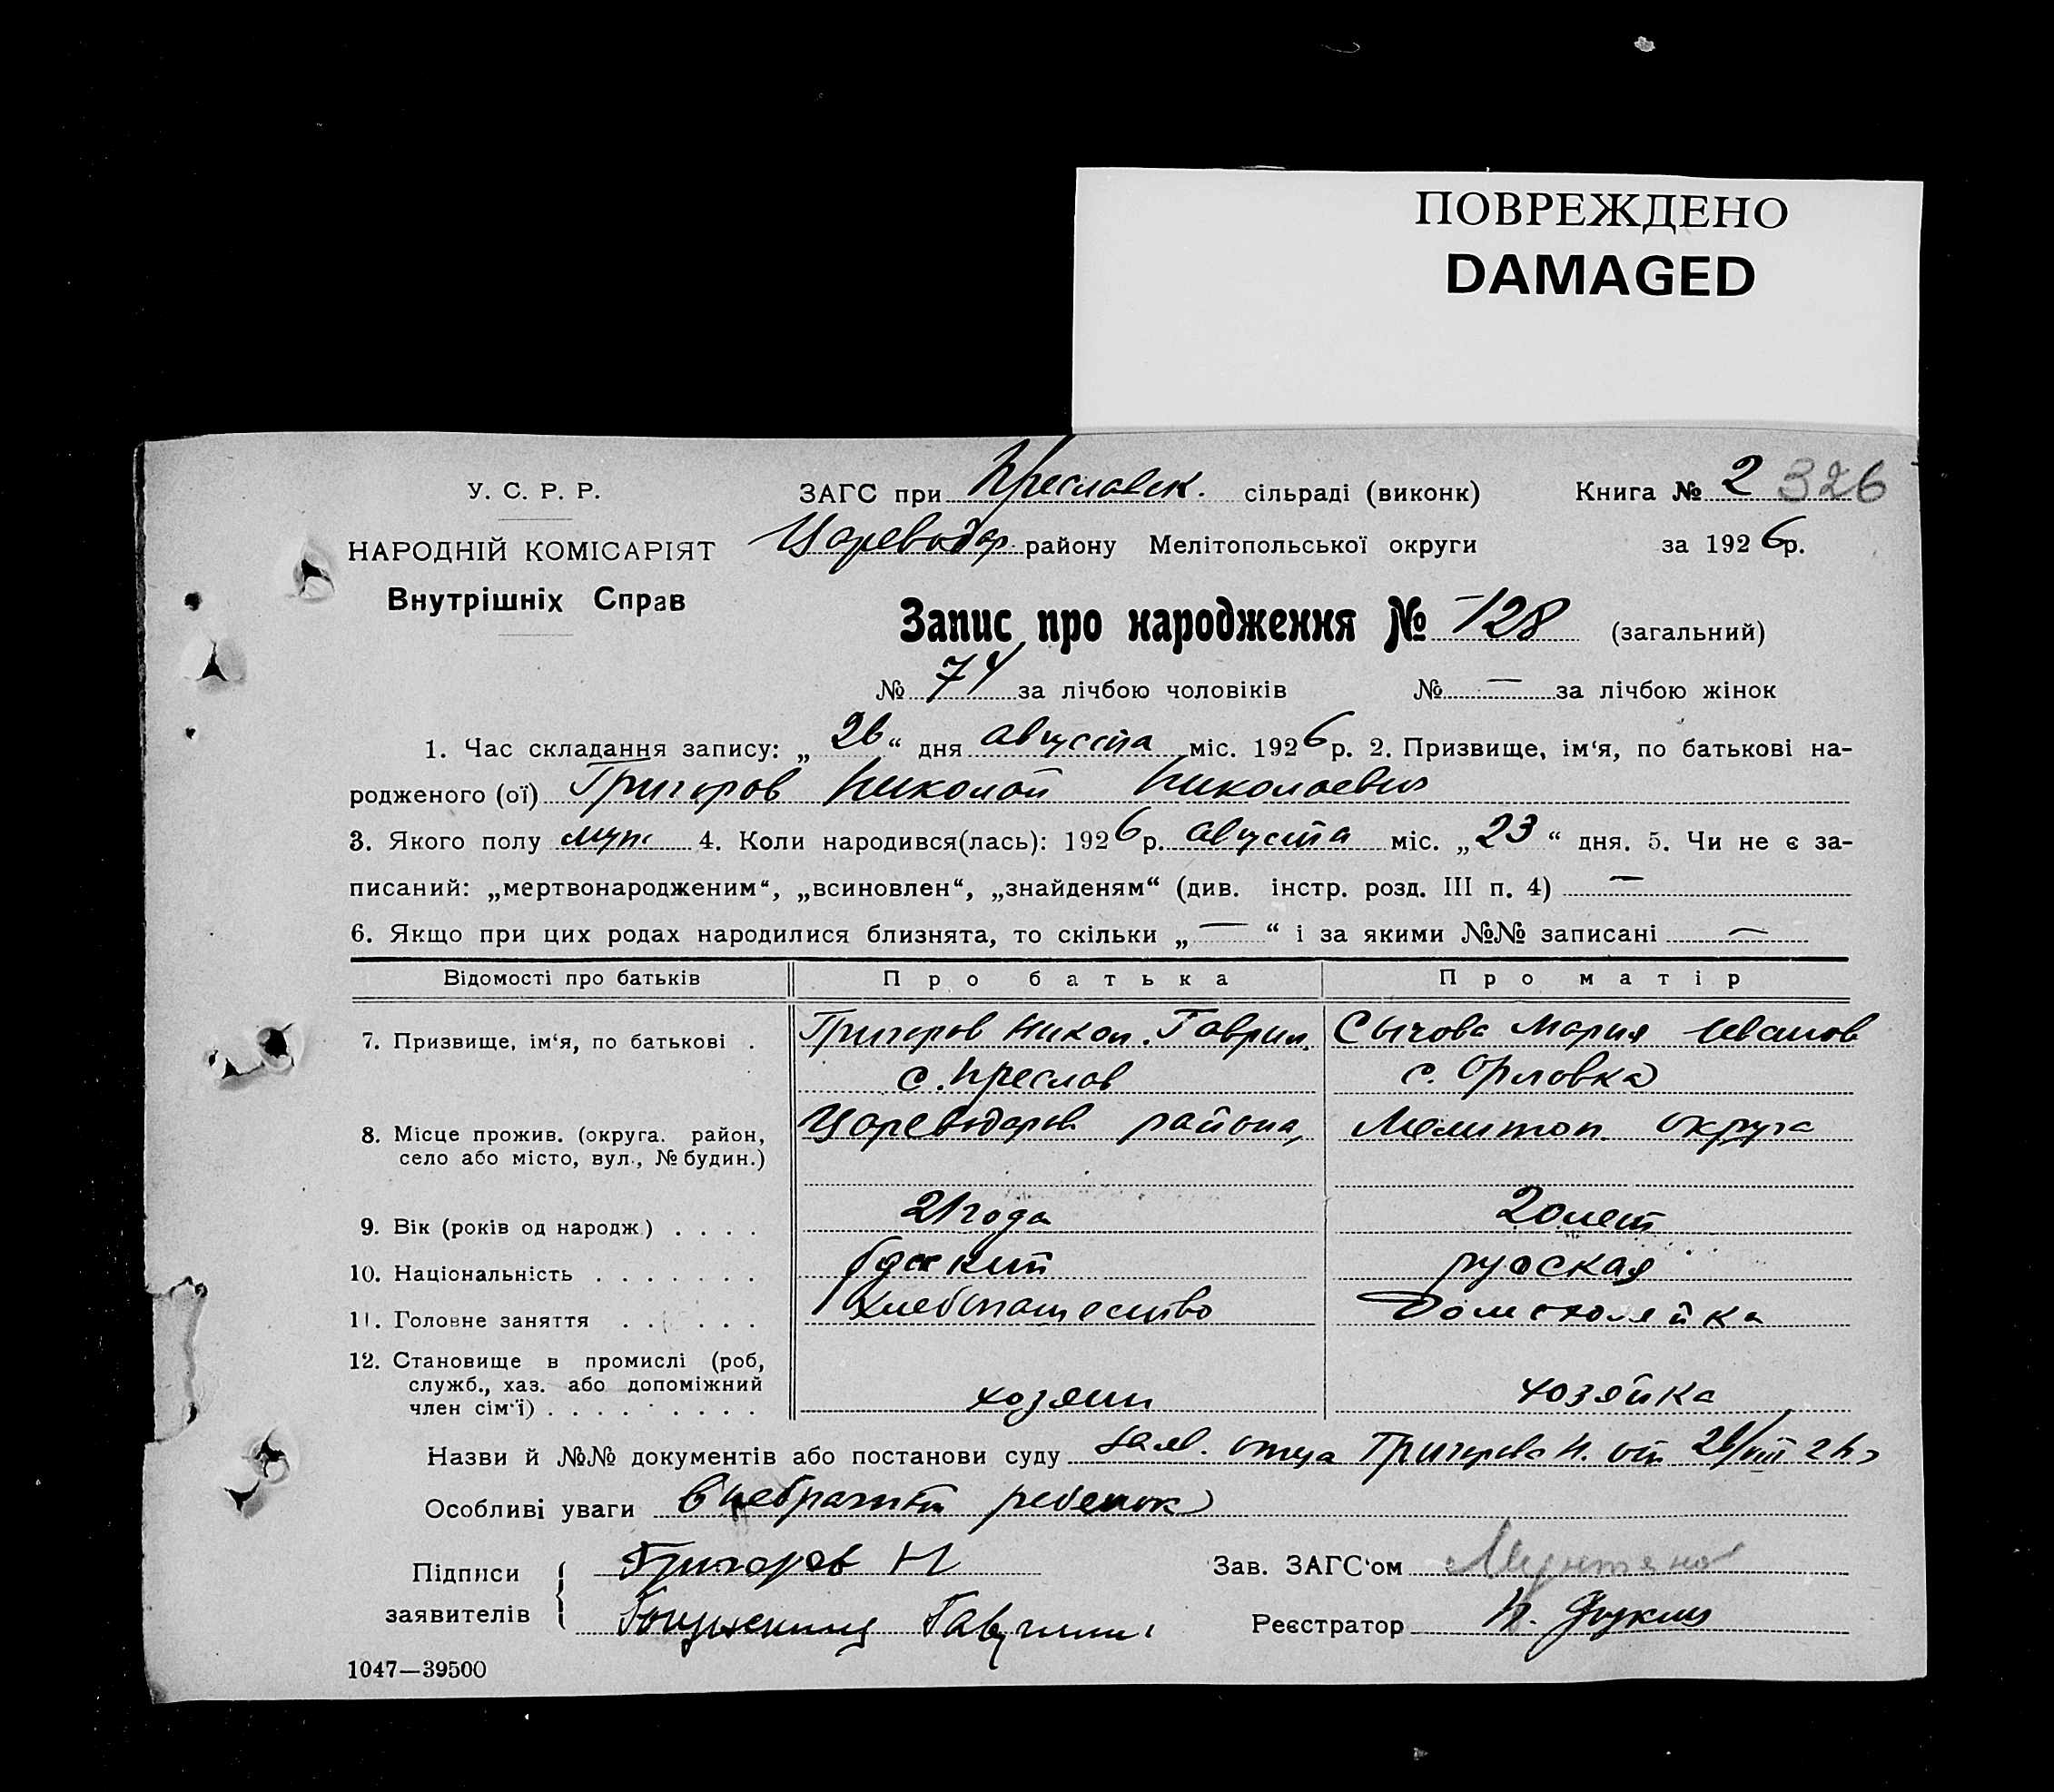 ПОВРЕЖДЕНО
DAMAGED
У. С. Р. Р.
ЗАГС при Преславск. сільраді (виконк) Книга № 2 326
НАРОДНІЙ КОМІСАРІЯТ
Цареводар. району Мелітопольської округи за 1926 р.
Внутрішніх Справ
Запис про народження № 128 (загальний)
№ 74 за лічбою чоловіків № — за лічбою жінок
1. Час складання запису: „26“ дня августа міс. 1926 р. 2. Призвище, ім‘я, по батькові на-
родженого (ої) Григоров Николай Николаевич
3. Якого полу муж. 4. Коли народився(лась): 1926 р. августа міс. „23“ дня. 5. Чи не є за-
писаний: „мертвонародженим“, „всиновлен“, „знайденям“ (див. інстр. розд. III п. 4) —
6. Якщо при цих родах народилися близнята, то скільки „—“ і за якими №№ записані —
Відомості про батьків Про батька Про матір
7. Призвище, ім‘я, по батькові . Григоров Никол. Гаврил. Сычова Мария Иванов
с. Преслав с. Орловка
8. Місце прожив. (округа. район, село або місто, вул., № будин.) Цареводаров района, Мелитоп округа
9. Вік (років од народж.) . . . . 21 года 20 лет
10. Національність . . . . . . . русская
11. Головне заняття . . . . . . хлебопашество домохозяйка
12. Становище в промислі (роб, служб., хаз. або допоміжний член сім‘ї) . . . . . . . . . хозяин хозяйка
Назви й №№ документів або постанови суду заяв. отца Григорова Н. от 26/VIII 26
Особливі уваги внебрачный ребенок
Підписи заявителів Григоров Н
Зав. ЗАГС‘ом
Реєстратор
1047—39500